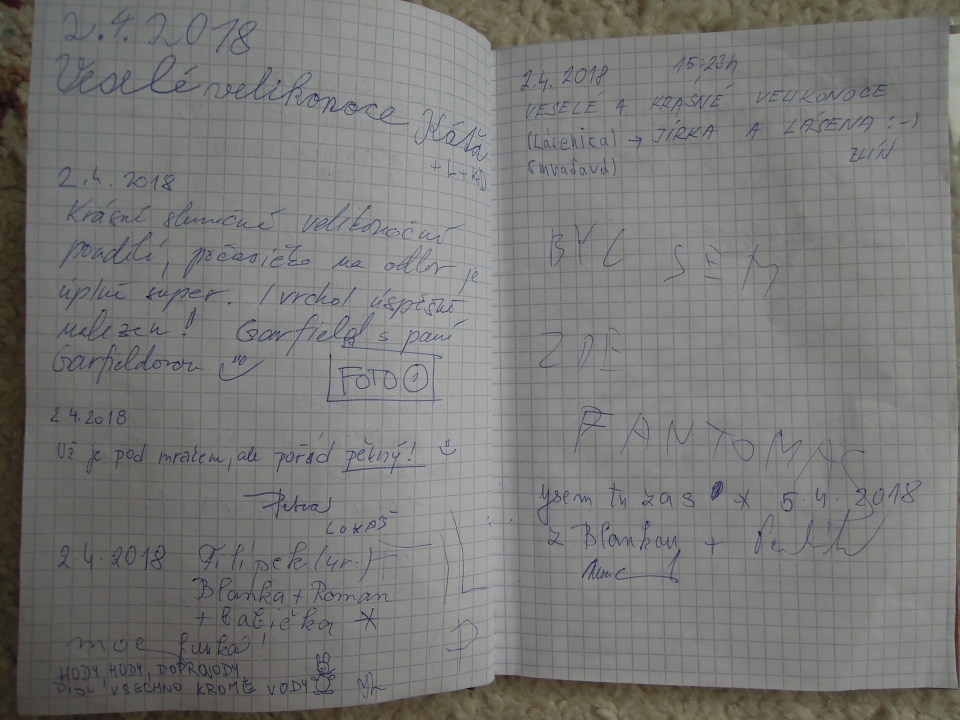 2.4.2018
Veselé velikonoce
Káťa
+ L +
2.4.2018
Krásné slunečné velikonoční
pondělí, počasíčko na odlov je
úplně super. I vrchol úspěšně
nalezen! Garfield s paní
Garfieldovou
FOTO
2.4.2018
Už je pod mrakem, ale pořád pěkný!
Petra
LUKÁŠ
2.4.2018 Filípek (4r.)
Blanka + Roman
+ babička
moc fouká!
HODY HODY, DOPROVODY
PIJU VŠECHNO KROMĚ VODY
2.4.2018 15,23h
VESELÉ A KRÁSNÉ VELIKONOCE
→ JIRKA A :-)
ZLÍN
BYL SEM
ZDE
FANTOMAS
jsem tu zas 5.4.2018
z Blankou +